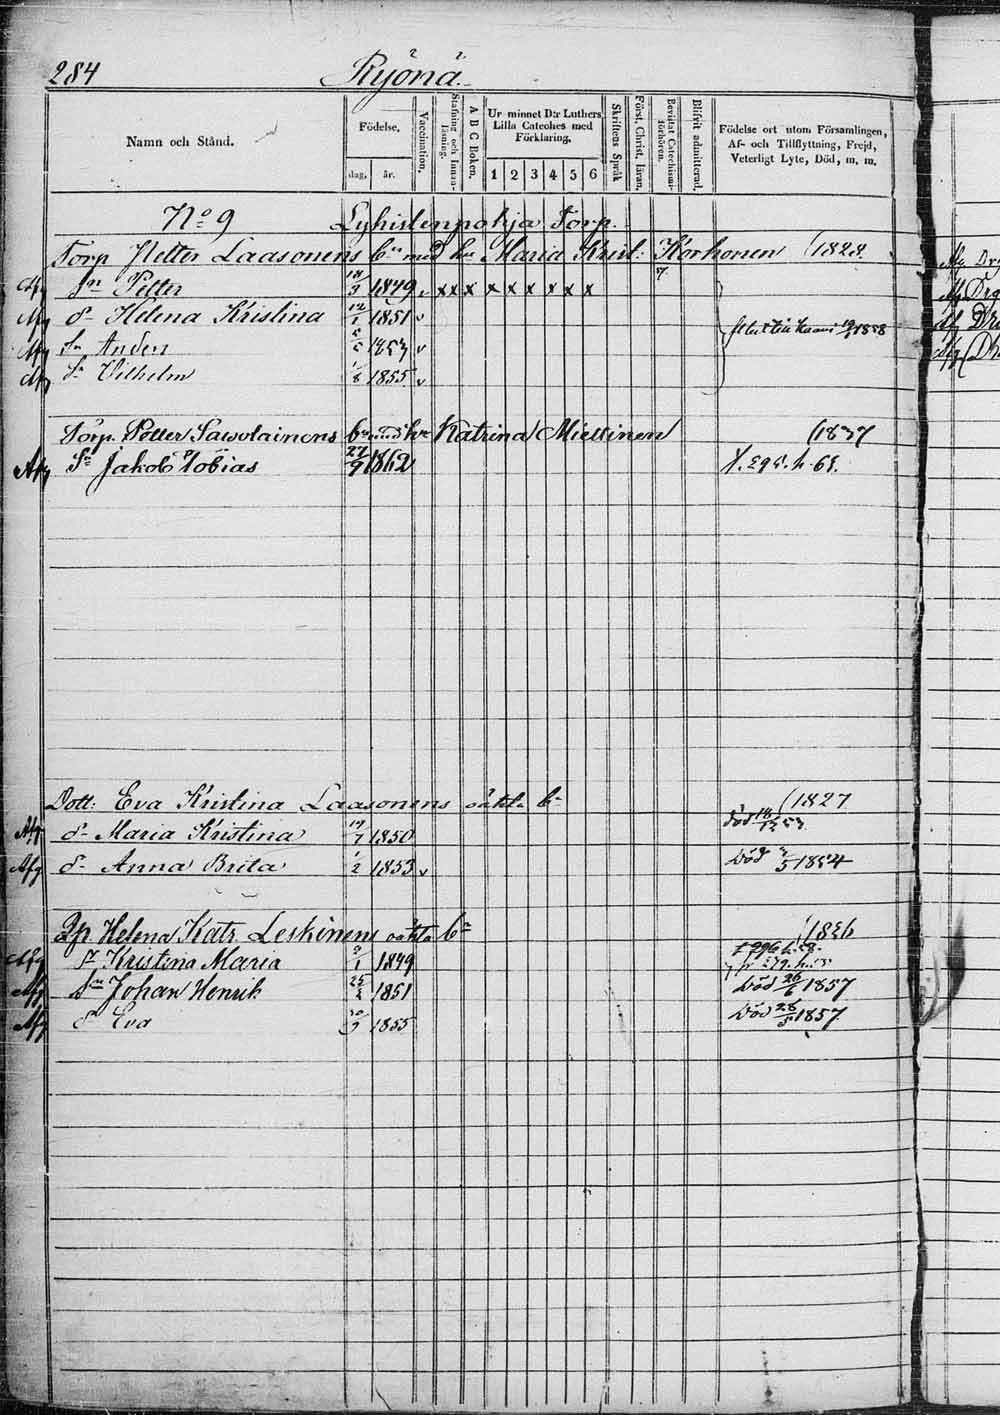 284 Ryönä.
Namn och Stånd.
Födelse,
dag, år.
Vaccination,
Stafning och Innan-läsning.
A B C Boken.
Ur minnet D:r Luthers Lilla Cateches med Förklaring,
1 2 3 4 5 6
Skriftens Språk
Först. Christ. läran,
Bevistat Catechismi-förhören.
Blifvit admitterad.
Födelse ort utom Församlingen, Af- och Tillflyttning, Frejd, Veterligt Lyte, Död, m. m.
No 9 Lyhistenpohja Torp.
Torp Petter Laasonens bn med hu Maria Krist: Korhonen (1828.
Afg Sn Petter 18/9 1849 v x x x x x x x x x
Afg d- Helena Kristina 12/1 1851 v
Afg Sn Anders 1853 v
Afg Sn Vilhelm 1/8 1855 v
1858
Torp. Petter Sawolainens bn med hu Katrina Miettinen (1837
Afg Sn Jakob Tobias 27/9 1862
Dott: Eva Kristina Laasonens oäkta bn (1827
Afg d- Maria Kristina 19/7 1850 död
Afg d- Anna Brita 1/2 1853 v död 3/5 1854
Helena Katr Leskinens oäkta bn (1826
Afg Kristina Maria 1849
Afg Sn Johan Henrik 25/2 1851 död 26/6 1857
Afg d Eva 30/9 1855 död 28/5 1857